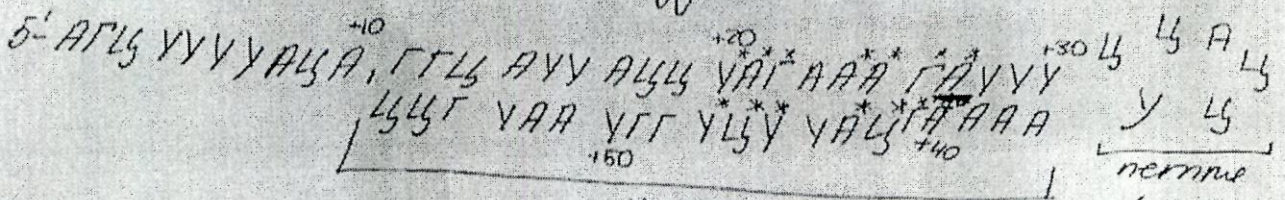 5'- АГЦ УУУУ АЦА, ГГЦ АУУ АЦЦ УАГ ААА ГАУУУ Ц Ц А Ц
+10 +20 +30
ЦЦГ УАА УГГ УЦУ УАЦГАААА У Ц
+50 +40
петле